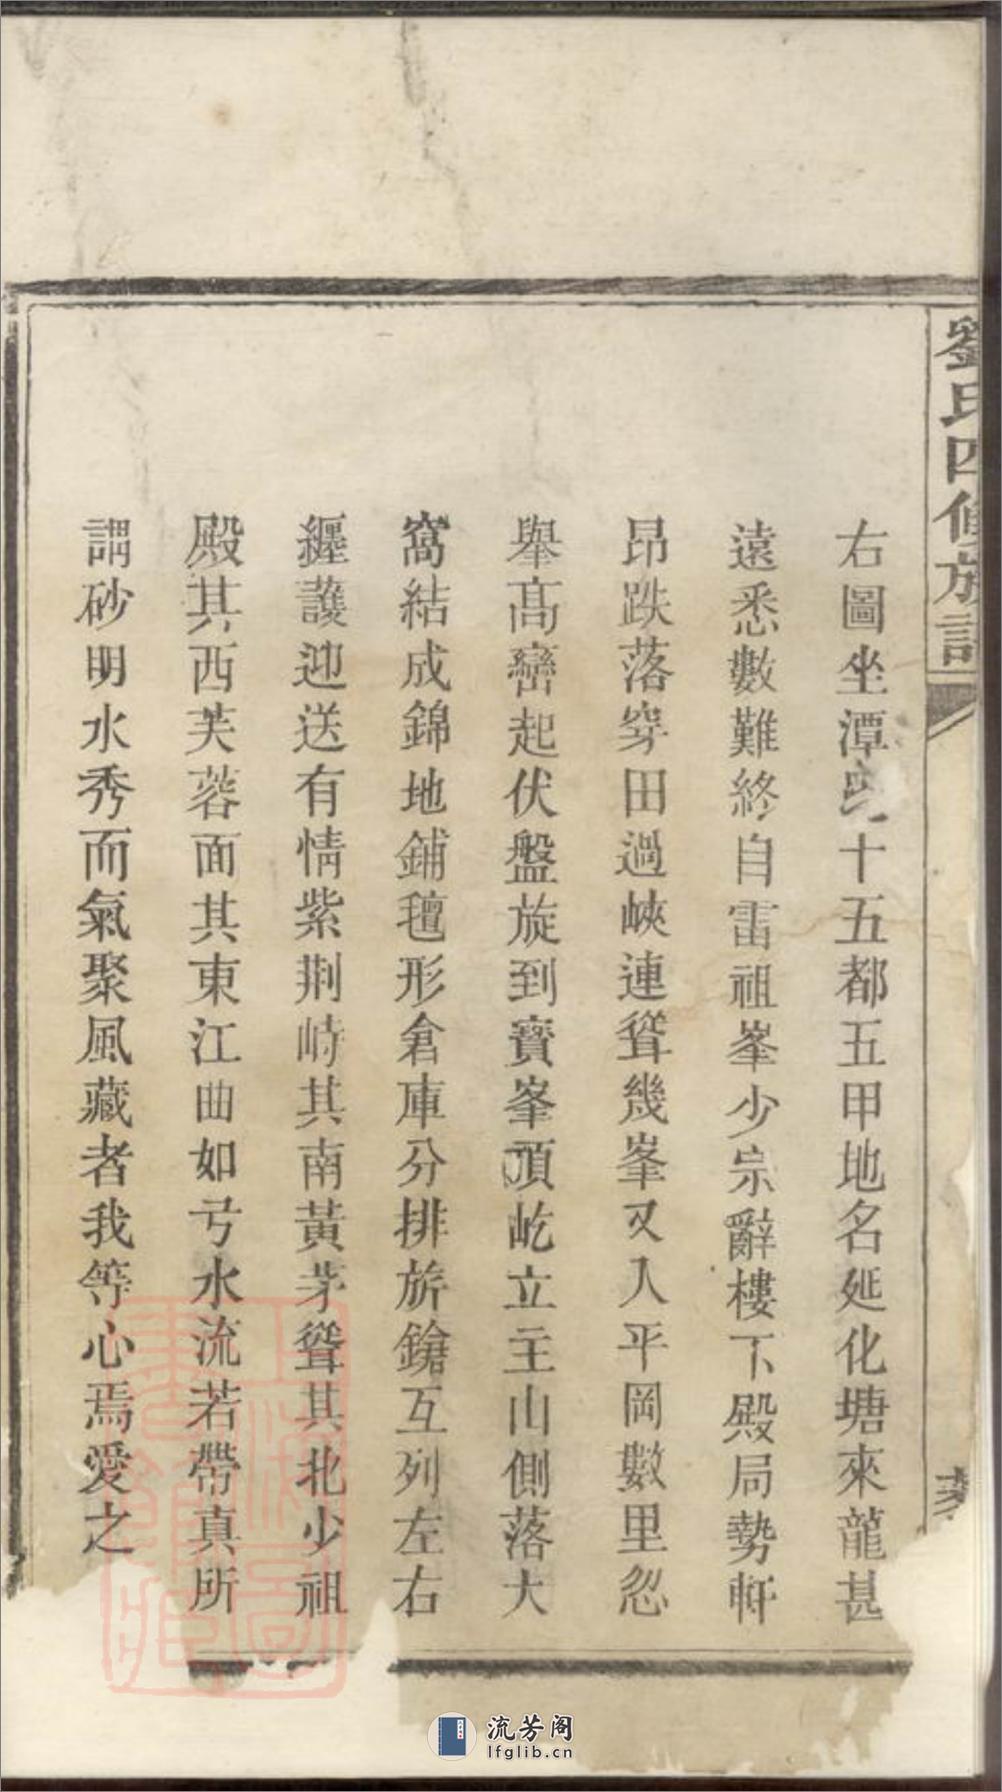 劉氏四修族譜
右圖坐潭邑十五都五甲地名延化塘來龍甚
遠悉數難終自雷祖峯少宗辭樓下殿局勢軒
昂跌落穿田過峽連聳幾峯又入平岡數里忽
舉高巒起伏盤旋到寶峯頂屹立主山側落大
窩結成錦地鋪氊形倉庫分排旂鎗互列左右
纒護迎送有情紫荆峙其南黃茅聳其北少祖
殿其西芙蓉面其東江曲如弓水流若帶真所
謂砂明水秀而氣聚風藏者我等心焉愛之
流芳阁
lfglib.cn